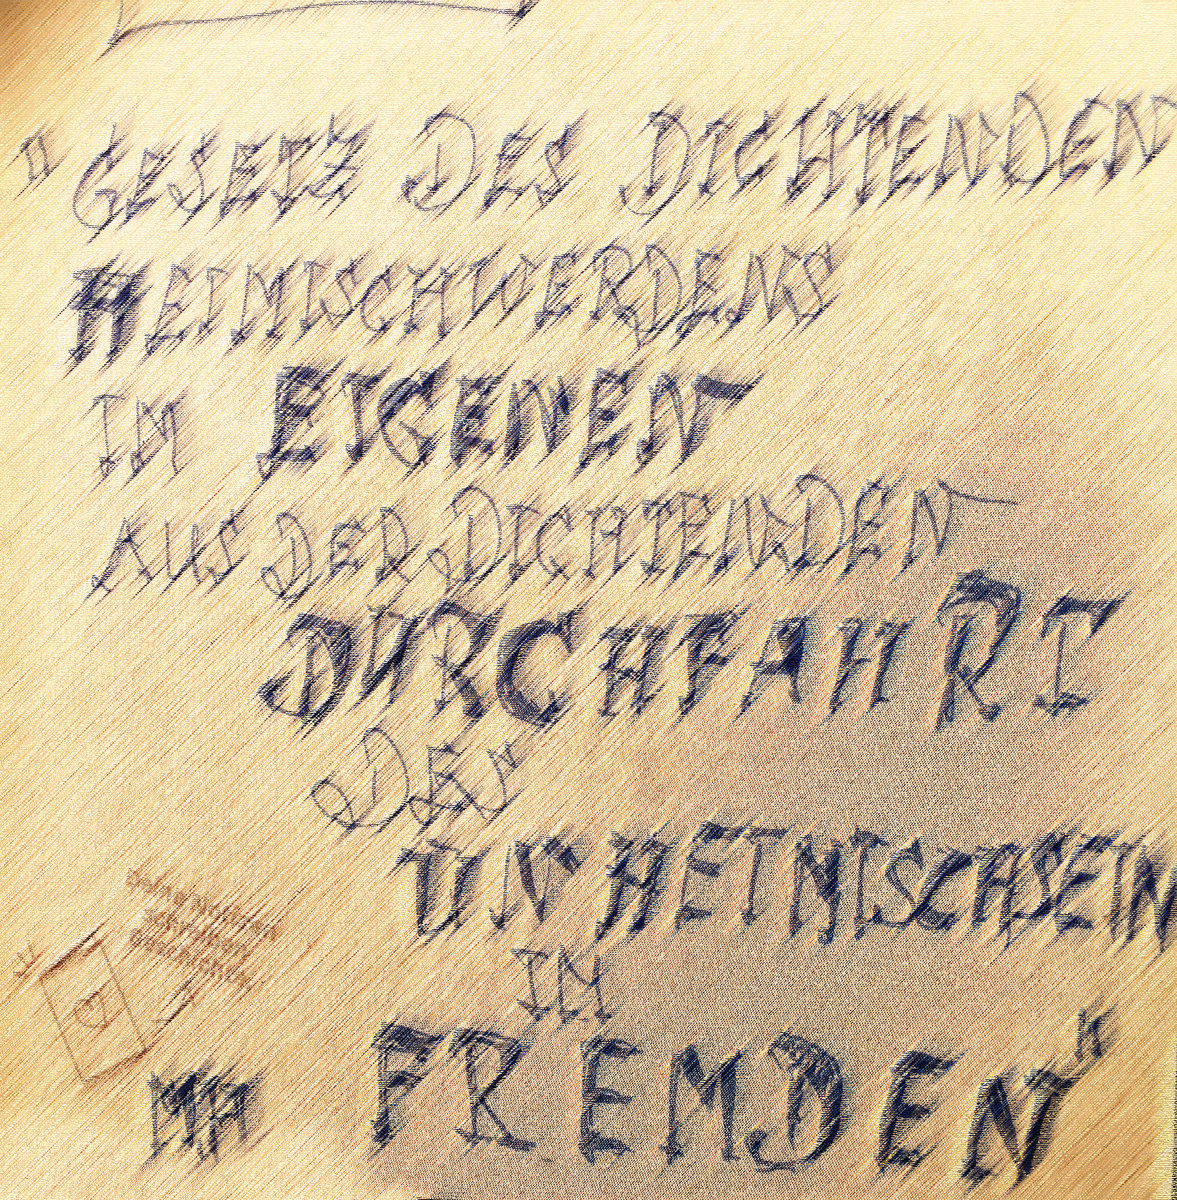 "GESETZ DES DICHTENDEN
HEIMISCHWERDENS
IM EIGENEN
AUS DER DICHTENDEN
DURCHFAHRT
DES
UNHEIMISCHSEIN
IM
FREMDEN"